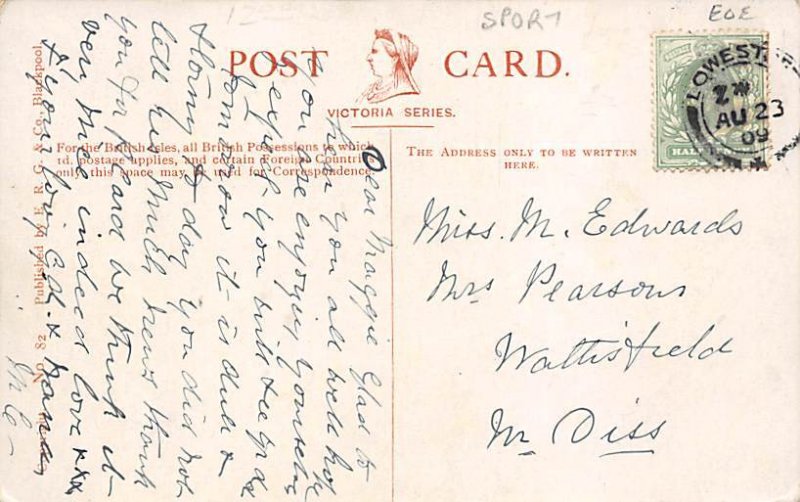 SPORT
EOE
POST CARD.
VICTORIA SERIES.
For the British Isles, all British Possessions to which
1d. postage applies, and certain Foreign Countries
only, this space may be used for Correspondence.
THE ADDRESS ONLY TO BE WRITTEN
HERE.
LOWESTOFT
AU 23
09
HALF
No. 82 Published by E. R. G. & Co., Blackpool.
Dear Maggie Glad to
hear you all well hope
you are enjoying yourselves
expect you will see Gra
Tomorrow it is dull &
stormy to day you did not
tell us much news thank
you for p card we think it
very nice indeed love xxx
to your loving
Miss. M. Edwards
Mrs Pearsons
Wattisfield
Nr Diss